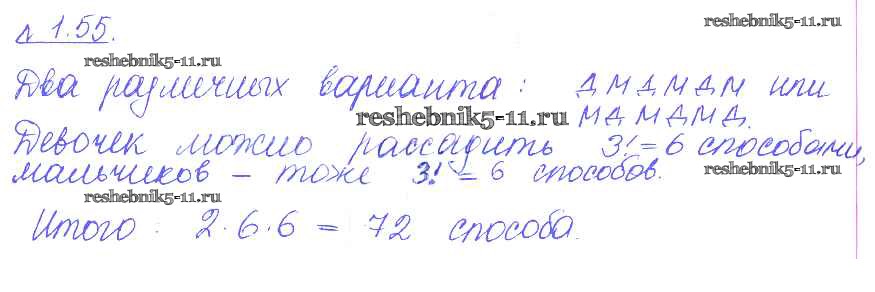 № 1.55.
reshebnik5-11.ru
reshebnik5-11.ru
Два различных варианта: Д М Д М Д М или
М Д М Д М Д.
reshebnik5-11.ru
Девочек можно рассадить 3! = 6 способами,
мальчиков – тоже 3! = 6 способов.
reshebnik5-11.ru
reshebnik5-11.ru
Итого: 2·6·6 = 72 способа.